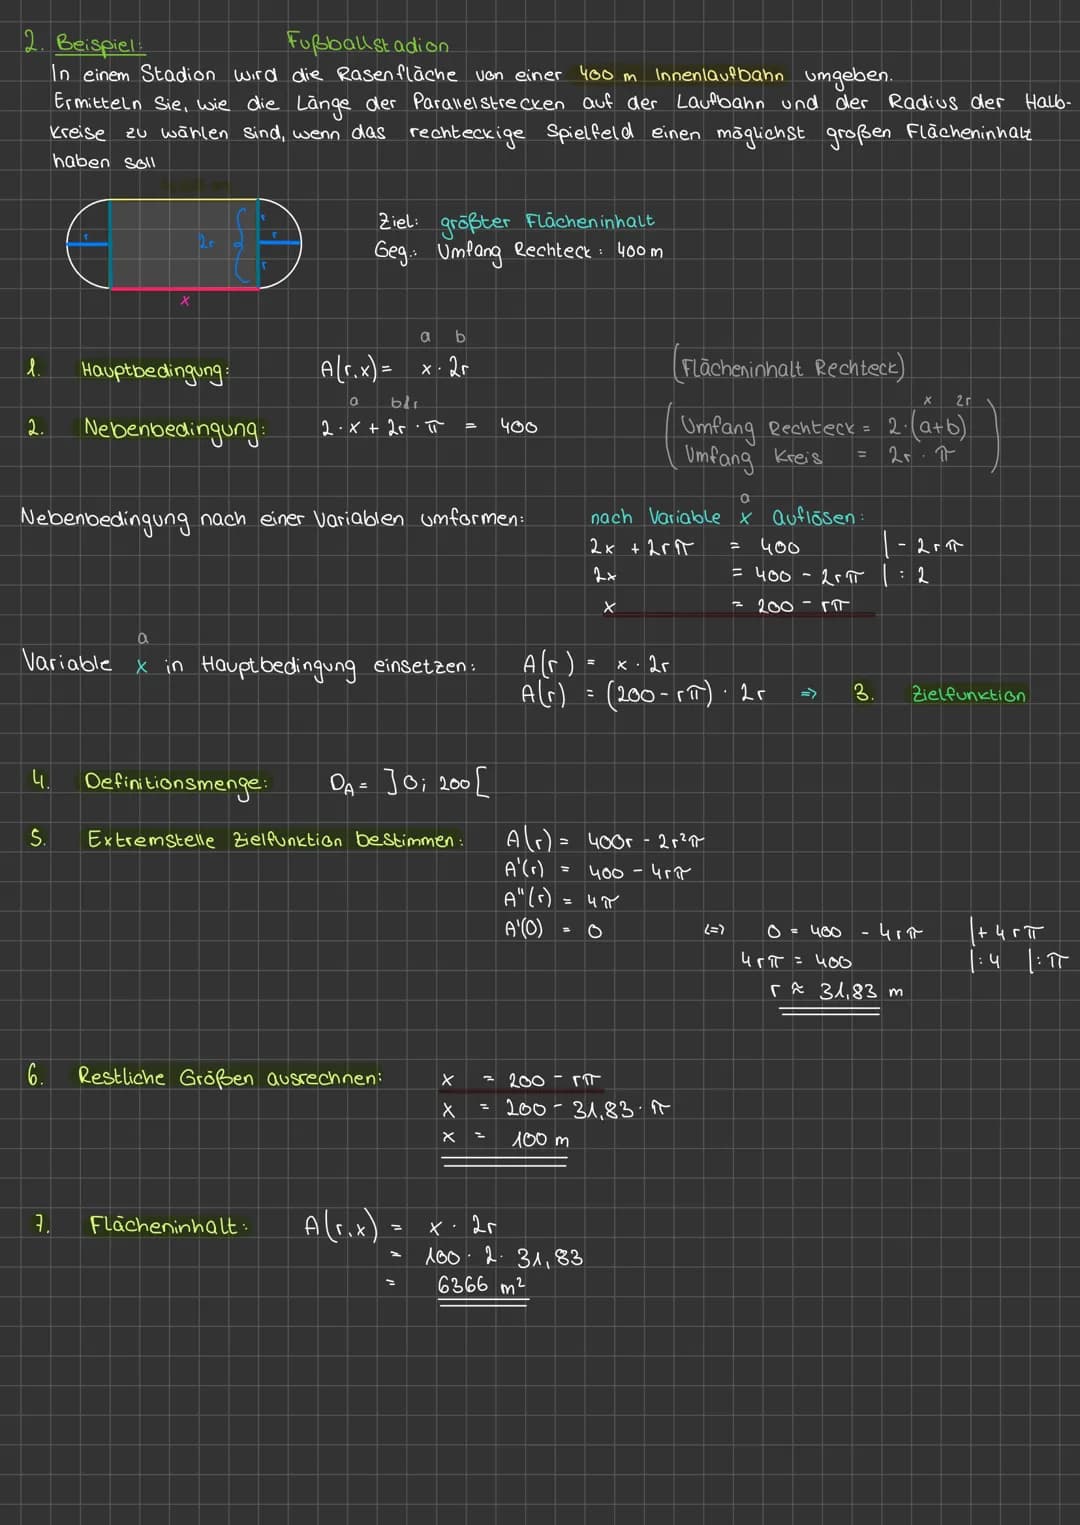 2. Beispiel: Fußballstadion
In einem Stadion wird die Rasenfläche von einer 400 m Innenlaufbahn umgeben.
Ermitteln Sie, wie die Länge der Parallelstrecken auf der Laufbahn und der Radius der Halb-
kreise zu wählen sind, wenn das rechteckige Spielfeld einen möglichst großen Flächeninhalt
haben soll
r 2r r r r
x
Ziel: größter Flächeninhalt
Geg.: Umfang Rechteck: 400 m
a b
1. Hauptbedingung: A(r,x) = x · 2r (Flächeninhalt Rechteck)
2. Nebenbedingung: 2 · x + 2r · π = 400
x 2r
(Umfang Rechteck = 2·(a+b)
Umfang Kreis = 2r · π)
Nebenbedingung nach einer Variablen umformen: nach Variable x Auflösen:
a
2x + 2rπ = 400 | - 2rπ
2x = 400 - 2rπ | : 2
x = 200 - rπ
a
Variable x in Hauptbedingung einsetzen: A(r) = x · 2r
A(r) = (200 - rπ) · 2r => 3. Zielfunktion
4. Definitionsmenge: D_A = ]0; 200[
5. Extremstelle Zielfunktion bestimmen: A(r) = 400r - 2r²π
A'(r) = 400 - 4rπ
A"(r) = 4π
A'(0) = 0 <=> 0 = 400 - 4rπ |+ 4rπ
4rπ = 400 |:4 |:π
r ≈ 31,83 m
6. Restliche Größen ausrechnen: x = 200 - rπ
x = 200 - 31,83 · π
x = 100 m
7. Flächeninhalt: A(r,x) = x · 2r
= 100 · 2 · 31,83
= 6366 m²